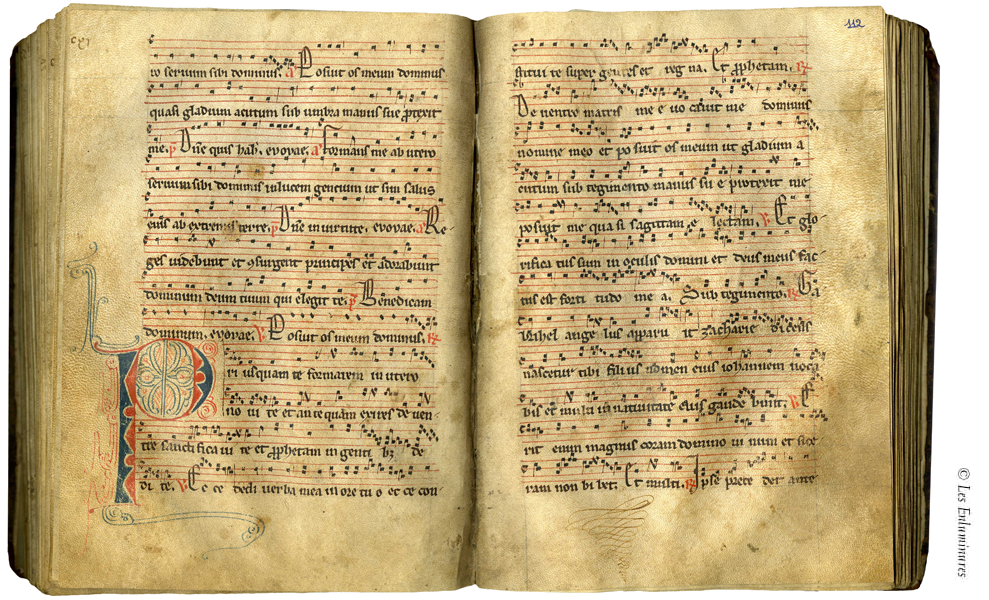 cxi
ro seruum sibi dominus. a Posuit os meum dominus
quasi gladium acutum sub umbra manus sue protexit
me. p Dne quis hab. evovae. a Formans me ab utero
seruum sibi dominus in lucem gentium ut sim salus
eius ab extremis terre. p Dne in uirtute. evovae. a Re-
ges uidebunt et 9surgent principes et adorabunt
dominum deum tuum qui elegit te. p Benedicam
dominum. evovae. V Posuit os meum dominus. R
Pri usquam te formarem in utero
noui te et antequam exires de uen-
tre sanctifica ui te et pphetam in genti bz de
di te. V Ecce dedi uerba mea in ore tuo et ce con-
112
stitui te super gentes et regna. Et pphetam. R
De uentre matris mee uocauit me dominus
nomine meo et posuit os meum ut gladium a
cutum sub tegumento manus sue protexit me
posuit me quasi sagittam electam. V Et glo-
rificatus sum in oculis domini et deus meus fac-
tus est fortitudo mea. Sub tegumento. R Ga
brihel angelus apparuit zacharie dicens
nascetur tibi filius nomen eius iohannem uoca
bis et multi in natiuitate eius gaudebunt. V E
rit enim magnus coram domino uinum et sice
ram non bibet. Et multi. R Ipse preet det ante
© Les Enluminures